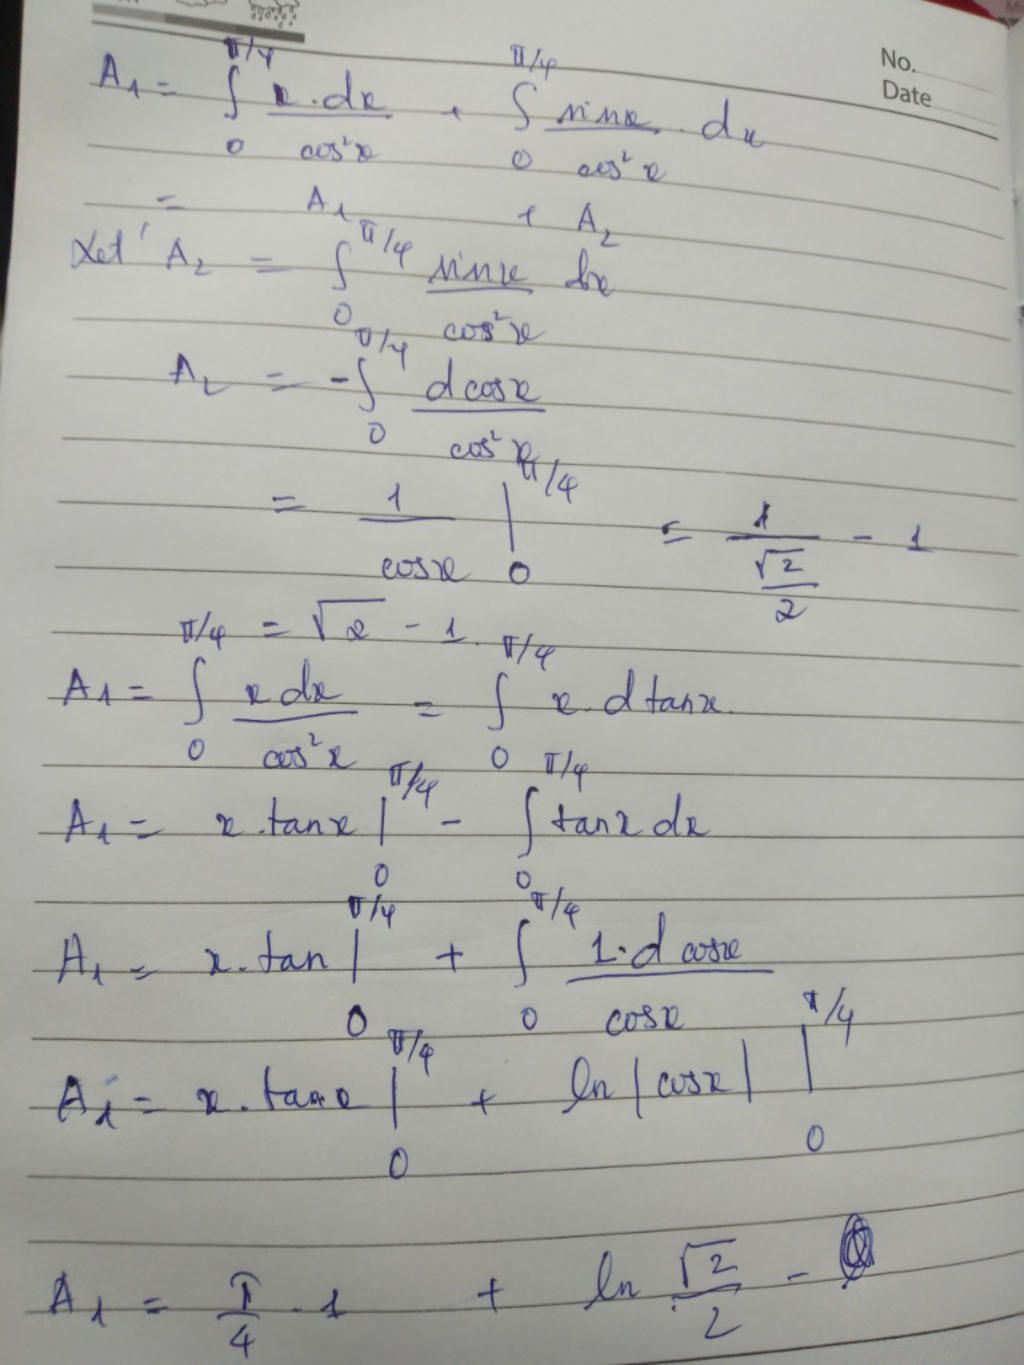 No.
Date
A₁ = ∫₀^{π/4} x.dx/cos²x + ∫₀^{π/4} sinx/cos²x . dx
= A₁ + A₂
Xét A₂ = ∫₀^{π/4} sinx/cos²x dx
A₂ = -∫₀^{π/4} dcosx/cos²x
= 1/cosx |₀^{π/4} = 1/(√2/2) - 1
= √2 - 1.
A₁ = ∫₀^{π/4} xdx/cos²x = ∫₀^{π/4} x.dtanx.
A₁ = x.tanx |₀^{π/4} - ∫₀^{π/4} tanxdx
A₁ = x.tan |₀^{π/4} + ∫₀^{π/4} 1.dcosx/cosx
A₁ = x.tanx |₀^{π/4} + ln|cosx| |₀^{π/4}
A₁ = π/4 . 1 + ln √2/2 -